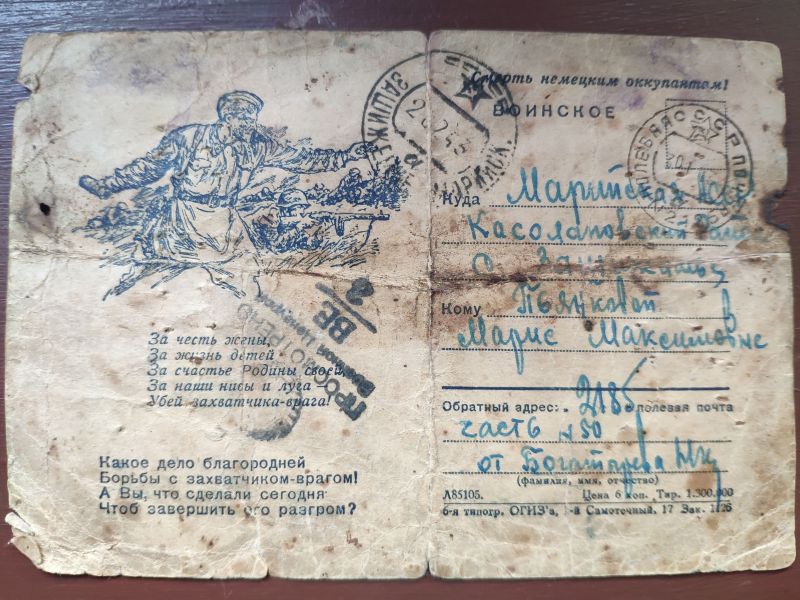 За честь жены,
За жизнь детей
За счастье Родины своей,
За наши нивы и луга —
Убей захватчика-врага!
Какое дело благородней
Борьбы с захватчиком-врагом!
А Вы, что сделали сегодня
Чтоб завершить его разгром?
ПРОСМОТРЕНО
Военной Цензурой
Смерть немецким оккупантам!
ВОИНСКОЕ
Куда Марийская
Кому Пьянковой
Марие Максимовне
Обратный адрес: 2185 полевая почта
часть № 50
от Богатырева
(фамилия, имя, отчество)
Л85105. Цена 6 коп. Тир. 1.300.000
6-я типогр. ОГИЗ'а, 1-й Самотечный, 17 Зак. 1126